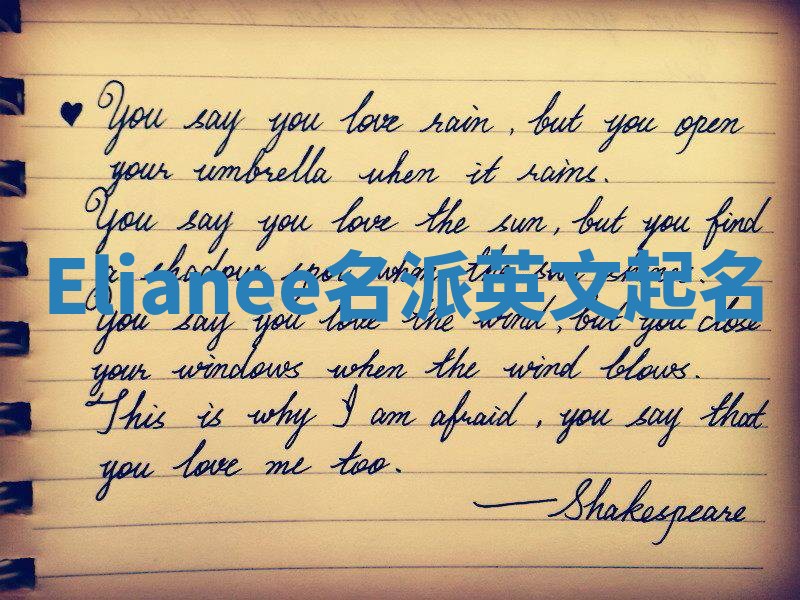 ♥ You say you love rain, but you open
your umbrella when it rains.
You say you love the sun, but you find
a shadow spot when the sun shines.
Elianee名派英文起名
You say you love the wind, but you close
your windows when the wind blows.
This is why I am afraid, you say that
you love me too.
—Shakespeare